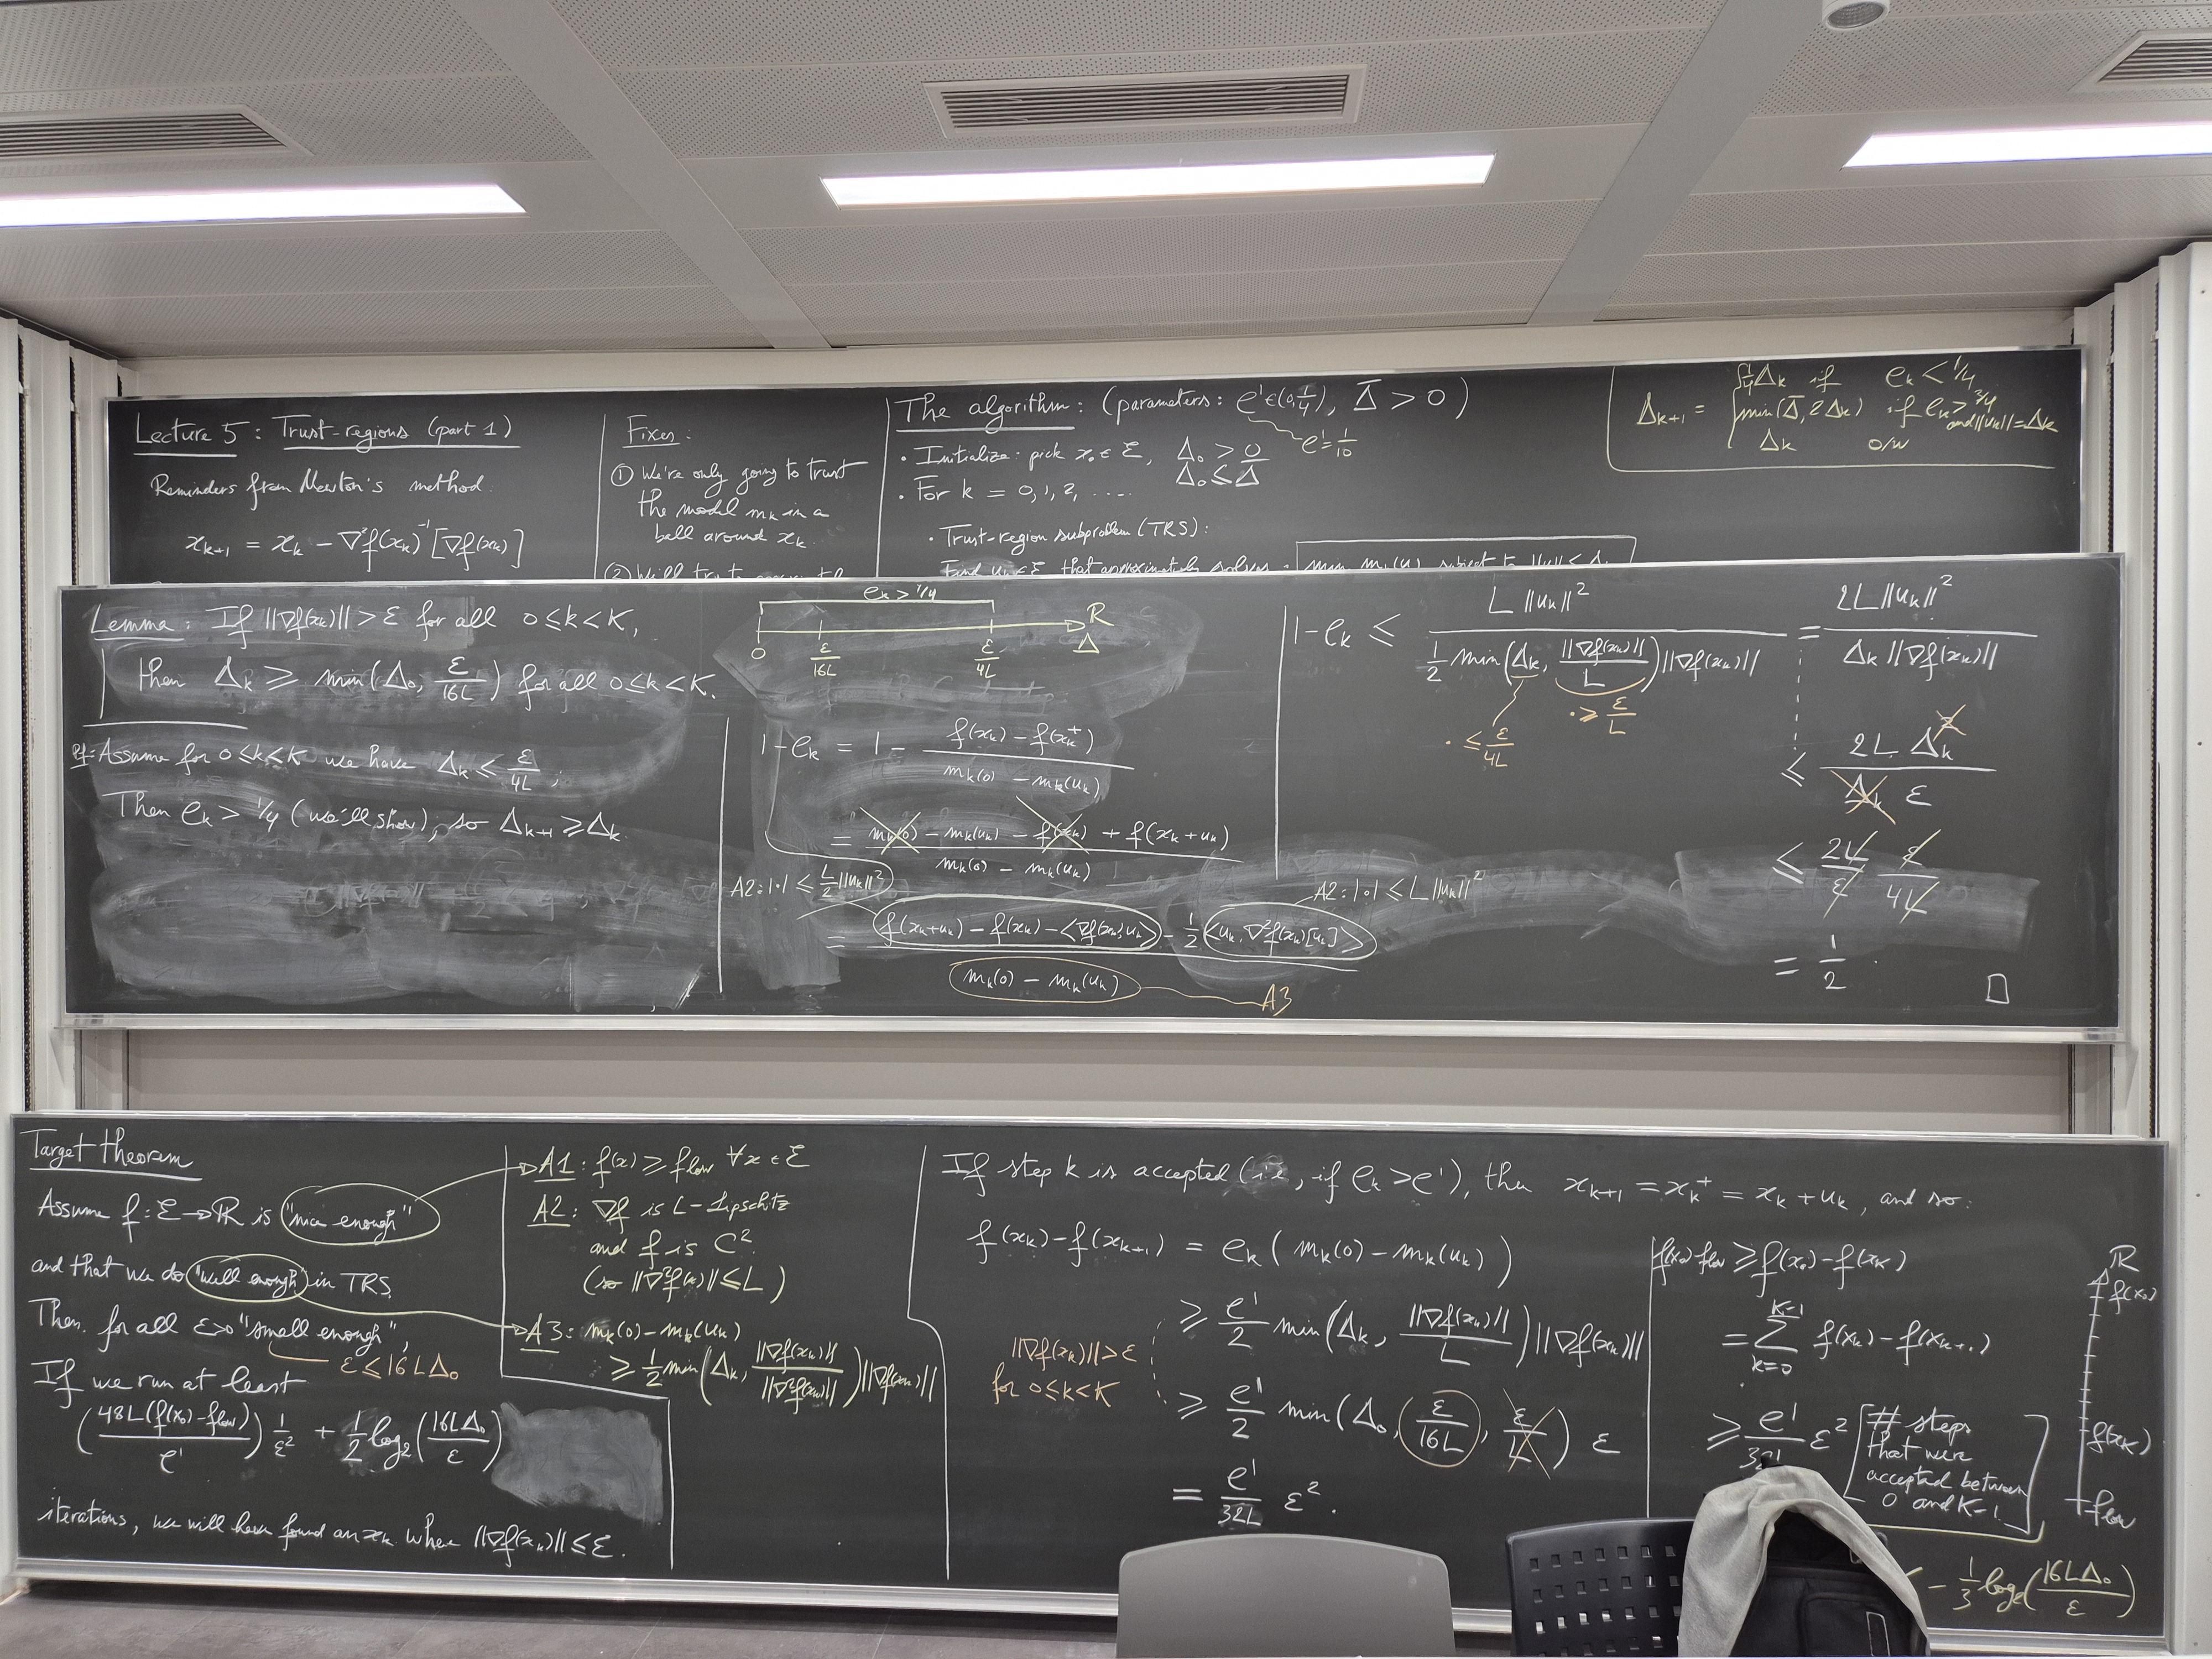 Lecture 5 : Trust-regions (part 1)
Reminders from Newton's method.
x_{k+1} = x_k - ∇²f(x_k)^{-1}[∇f(x_k)]
Fixes:
① We're only going to trust
the model m_k in a
ball around x_k.
The algorithm : (parameters: ρ' ∈ (0, 1/4), Δ̄ > 0)
ρ' = 1/10
• Initialize: pick x_0 ∈ ℰ, Δ_0 > 0
Δ_0 ≤ Δ̄
• For k = 0, 1, 2, ....
• Trust-region subproblem (TRS):
Find u_k ∈ ℰ that approximately solves : min m_k(u) subject to ||u|| ≤ Δ_k
Δ_{k+1} = { 1/4 Δ_k if ρ_k < 1/4
min(Δ̄, 2Δ_k) if ρ_k > 3/4 and ||u_k|| = Δ_k
Δ_k o/w
Lemma : If ||∇f(x_k)|| > ε for all 0 ≤ k < K,
then Δ_k ≥ min(Δ_0, ε/16L) for all 0 ≤ k < K.
Pf: Assume for 0 ≤ k < K we have Δ_k ≤ ε/4L;
Then ρ_k > 1/4 (we'll show), so Δ_{k+1} ≥ Δ_k.
ρ_k > 1/4
0 ε/16L ε/4L ℝ Δ
1 - ρ_k = 1 - (f(x_k) - f(x_k^+)) / (m_k(0) - m_k(u_k))
= (m_k(0) - m_k(u_k) - f(x_k) + f(x_k + u_k)) / (m_k(0) - m_k(u_k))
A2: |·| ≤ L/2 ||u_k||²
A2: |·| ≤ L ||u_k||²
= (f(x_k + u_k) - f(x_k) - <∇f(x_k), u_k> - 1/2 <u_k, ∇²f(x_k)[u_k]>) / (m_k(0) - m_k(u_k))
A3
1 - ρ_k ≤ L ||u_k||² / (1/2 min(Δ_k, ||∇f(x_k)||/L) ||∇f(x_k)||) = 2L ||u_k||² / (Δ_k ||∇f(x_k)||)
· ≤ ε/4L
· ≥ ε/L
≤ 2L Δ_k² / (Δ_k ε)
≤ 2L/ε ε/4L
= 1/2 .
□
Target theorem
Assume f : ℰ → ℝ is "nice enough"
and that we do "well enough" in TRS.
Then, for all ε>0 "small enough",
ε ≤ 16LΔ_0
If we run at least
(48L(f(x_0) - f_low) / ρ') 1/ε² + 1/2 log_2(16LΔ_0/ε)
iterations, we will have found an x_k where ||∇f(x_k)|| ≤ ε.
A1 : f(x) ≥ f_low ∀x ∈ ℰ
A2 : ∇f is L-Lipschitz
and f is C².
(so ||∇²f(x)|| ≤ L)
A3 : m_k(0) - m_k(u_k)
≥ 1/2 min(Δ_k, ||∇f(x_k)|| / ||∇²f(x_k)||) ||∇f(x_k)||
If step k is accepted (i.e., if ρ_k > ρ'), then x_{k+1} = x_k^+ = x_k + u_k, and so:
f(x_k) - f(x_{k+1}) = ρ_k (m_k(0) - m_k(u_k))
≥ ρ'/2 min(Δ_k, ||∇f(x_k)||/L) ||∇f(x_k)||
||∇f(x_k)|| > ε
for 0 ≤ k < K
≥ ρ'/2 min(Δ_0, ε/16L, ε/L) ε
= ρ'/32L ε² .
f(x_0) - f_low ≥ f(x_0) - f(x_K)
= Σ_{k=0}^{K-1} f(x_k) - f(x_{k+1})
≥ ρ'/32L ε² [# steps
that were
accepted between
0 and K-1.]
- 1/3 log_2(16LΔ_0/ε)
ℝ
f(x_0)
f(x_K)
f_low